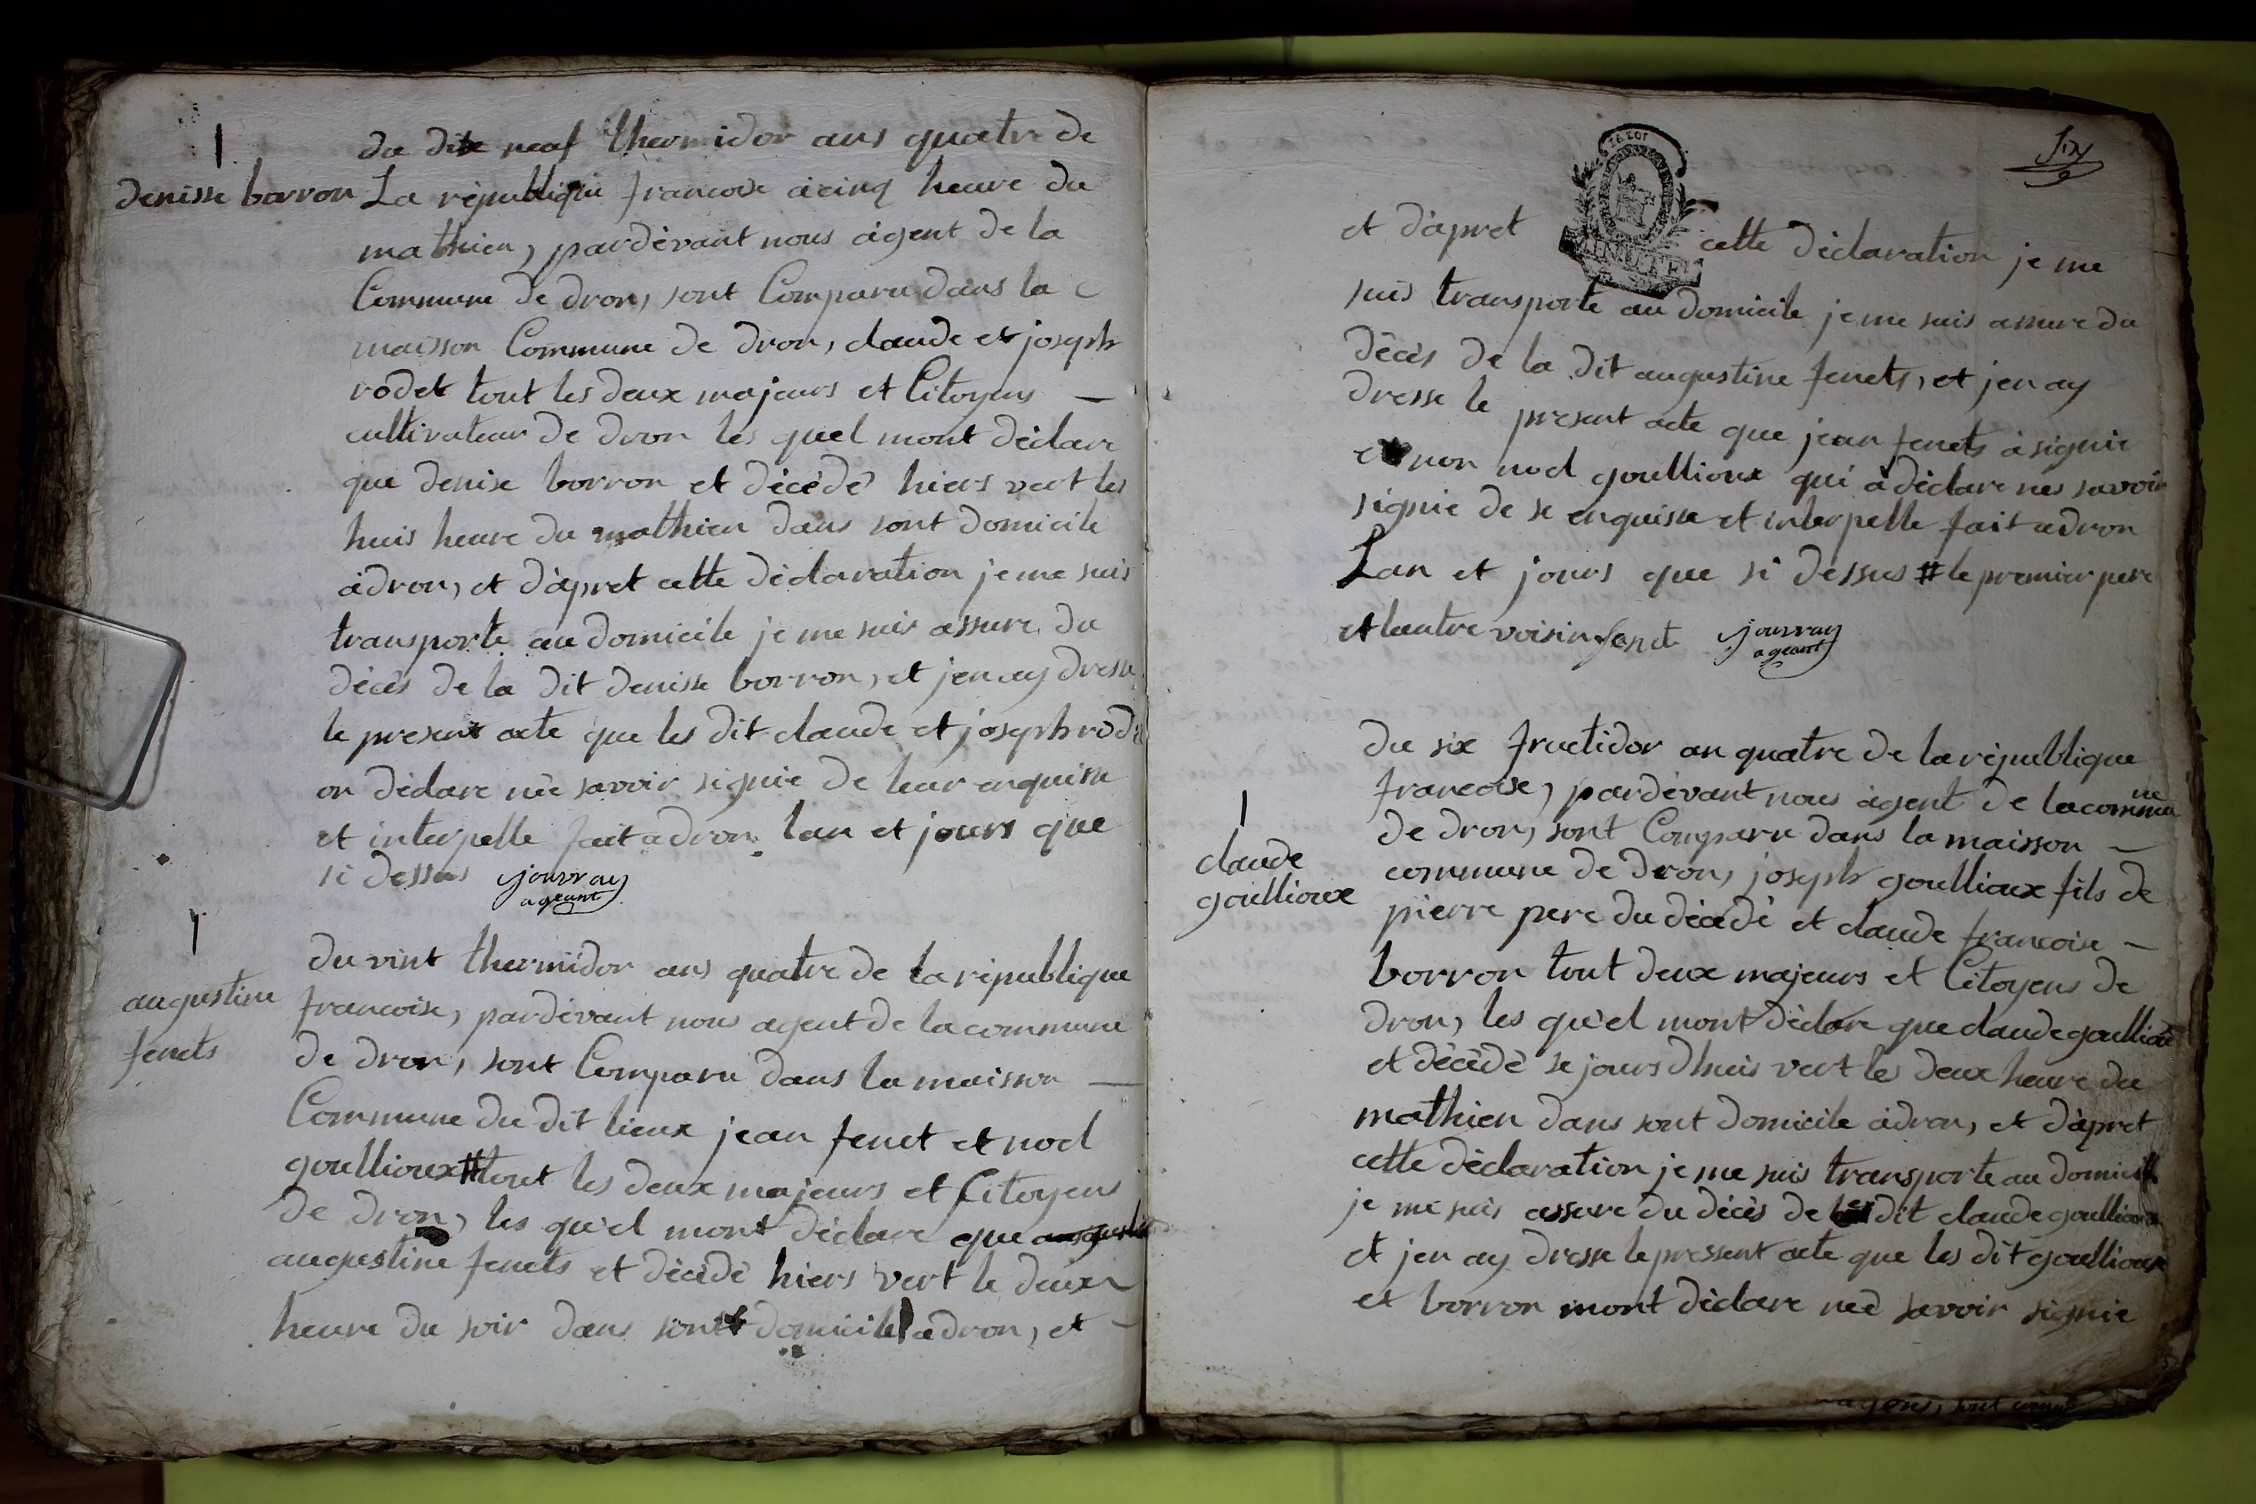 1
denisse borron
du dit neuf thermidor ans quatre de
La rèpublique francoise àcinq heure du
mathien, pardèvant nous àgent de la
Commune de dron, sont Comparu dans la
maisson Commune de dron, claude et joseph
rodet tout les deux majeurs et Citoyens —
cultivateur de dron les quel mont dèclare
que denise borron et dècèdè hiers vert les
huis heure du mathien dans sont domicile
àdron, et dàpret cette dèclaration je me suis
transporte au domicile je me suis assure du
dècès de la dit denisse borron, et jen ay dresse
le present acte que les dit claude et joseph rode
on dèclare nèe savoir signie de leur enquisse
et interpelle fait adron lan et jours que
si dessus jourray
ageant
1
augustine
fenets
du vint thermidor ans quatre de la rèpublique
francoise, pardèvant nous agent de la commune
de dron, sont Comparu dans la maisson —
Commune du dit lieux jean fenet et noel
goullioux # tout les deux majeurs et Citoyens
de dron, les qu'el mont dèclare que augustine
augustine fenets et dècèdè hiers vert le deux
heure du soir dans sont domicile adron, et —
six
et dàpret cette dèclaration je me
suis transporte au domicile je me suis assure du
dècès de la dit augustine fenets, et jen ay
dresse le present acte que jean fenets à signie
et non noel goullioux qui à dèclare nes savoir
signie de se enquisse et interpelle fait adron
Lan et jours que si dessus # le premier pere
et lautre voisin fenet jourray
ageant
1
claude
goullioux
du six fructidor an quatre de la rèpublique
francoise, pardèvant nous àgent de la commune
de dron, sont Comparu dans la maisson —
commune de dron, joseph goullioux fils de
pierre pere du dècèdè et claude francoise —
borron tout deux majeurs et Citoyens de
dron, les qu'el mont dèclare que claude goullioux
et dècèdè se jours dhuis vert les deux heure du
mathien dans sont domicile àdron, et dàpret
cette dèclaration je me suis transporte au domicille
je me suis assure du dècès de dit claude goullioux
et jen ay dresse le pressent acte que les dit goullioux
et borron mont dèclare neè savoir signie